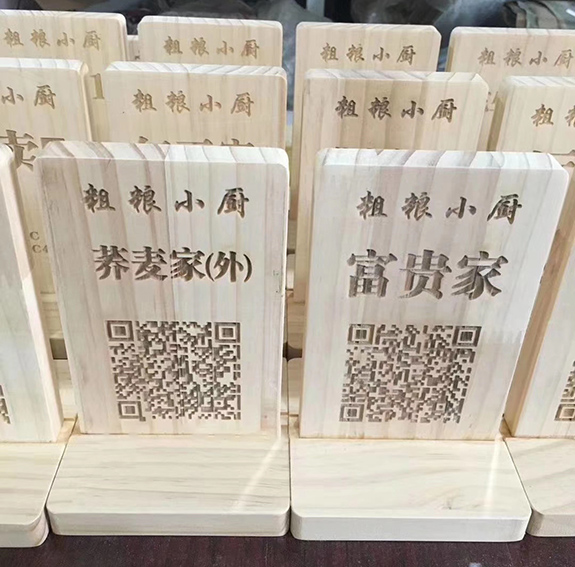 粗粮小厨
粗粮小厨
粗粮小厨
粗粮小厨
粗粮小厨
粗粮小厨
粗粮小厨
粗粮小厨
荞麦家(外)
粗粮小厨
富贵家